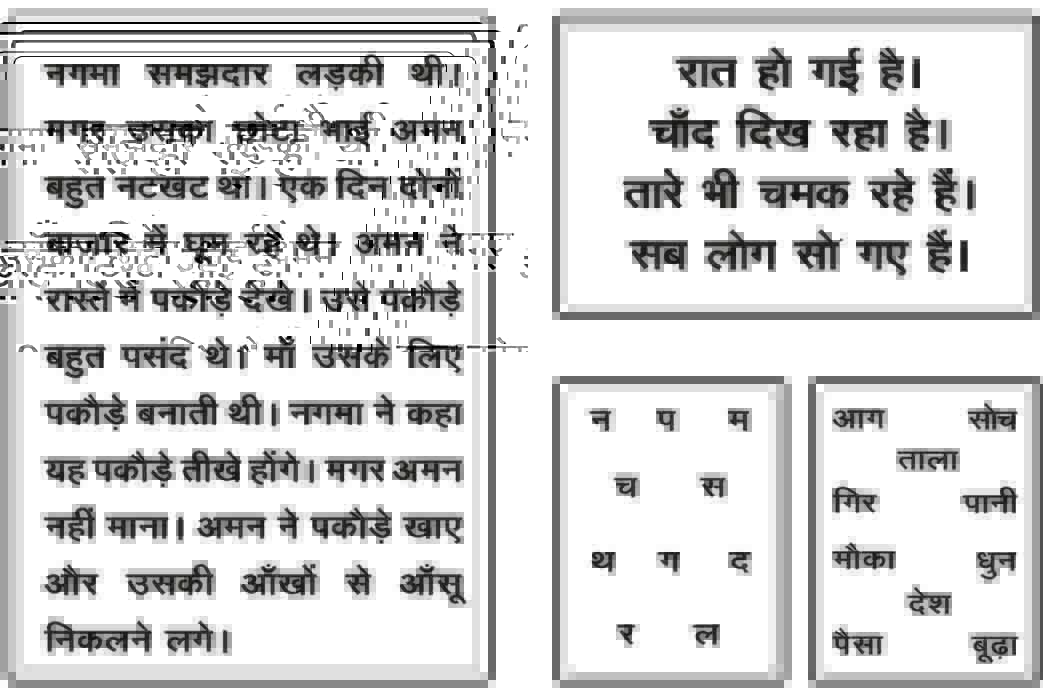 नगमा समझदार लड़की थी।
मगर उसका छोटा भाई अमन
बहुत नटखट था। एक दिन दोनों
बाज़ार में घूम रहे थे। अमन ने
रास्ते में पकौड़े देखे। उसे पकौड़े
बहुत पसंद थे। माँ उसके लिए
पकौड़े बनाती थी। नगमा ने कहा
यह पकौड़े तीखे होंगे। मगर अमन
नहीं माना। अमन ने पकौड़े खाए
और उसकी आँखों से आँसू
निकलने लगे।
रात हो गई है।
चाँद दिख रहा है।
तारे भी चमक रहे हैं।
सब लोग सो गए हैं।
न प म
च स
थ ग द
र ल
आग सोच
ताला
गिर पानी
मौका धुन
देश
पैसा बूढ़ा